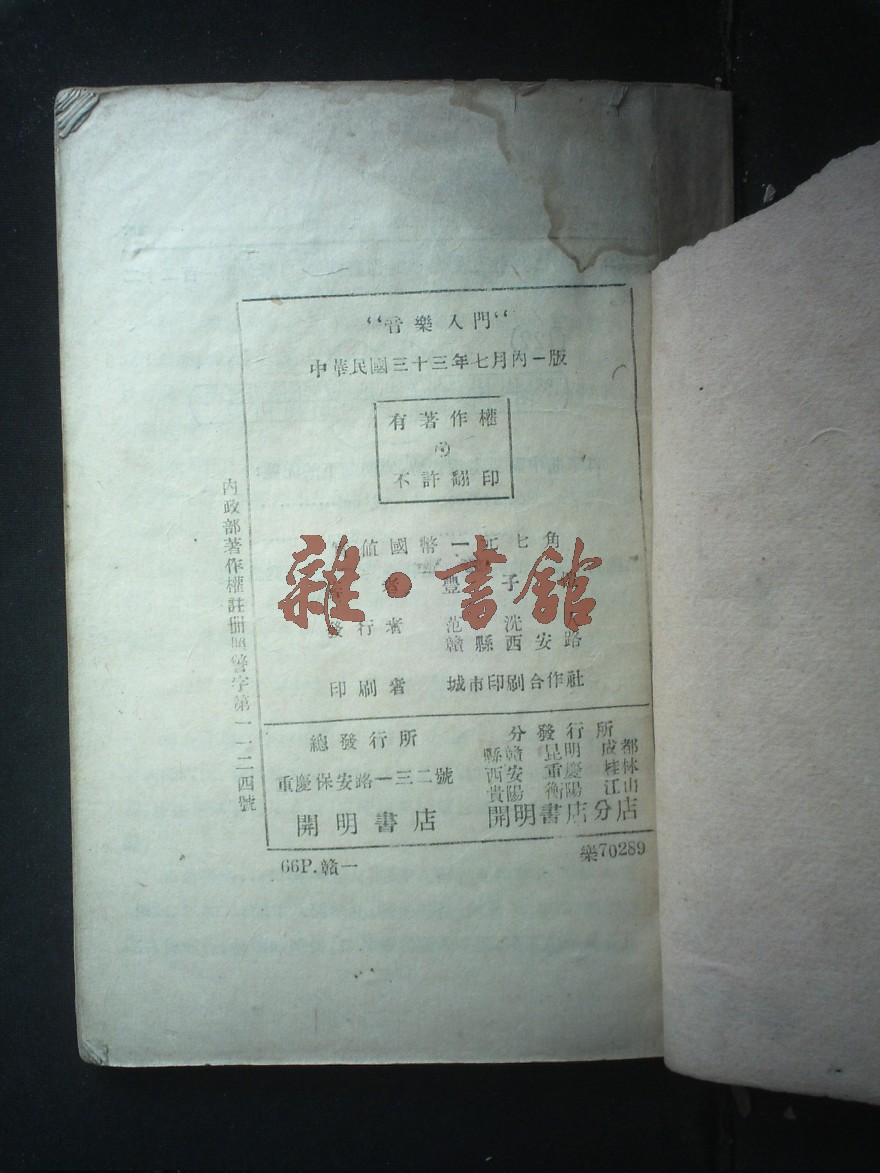 “音樂入門“
中華民國三十三年七月內一版
有著作權
不許翻印
值國幣一元七角
者 豐子
發行者 范洗
贛縣西安路
印刷者 城市印刷合作社
總發行所
重慶保安路一三二號
開明書店
分發行所
縣贛 昆明 成都
西安 重慶 桂林
貴陽 衡陽 江山
開明書店分店
66P.贛一
樂70289
內政部著作權註冊照警字第一一二四號
雜·書館